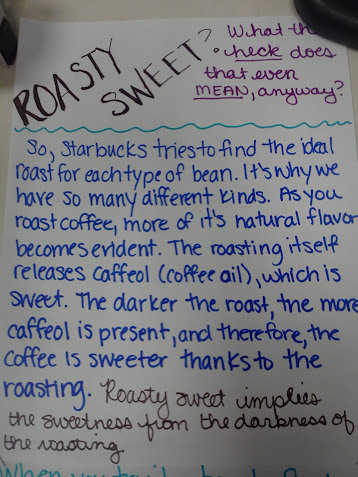 ROASTY SWEET?
What the
heck does
that even
MEAN, anyway?
So, Starbucks tries to find the ideal
roast for each type of bean. It's why we
have so many different kinds. As you
roast coffee, more of it's natural flavor
becomes evident. The roasting itself
releases caffeol (coffee oil), which is
sweet. The darker the roast, the more
caffeol is present, and therefore, the
coffee is sweeter thanks to the
roasting. Roasty sweet implies
the sweetness from the darkness of
the roasting
When you